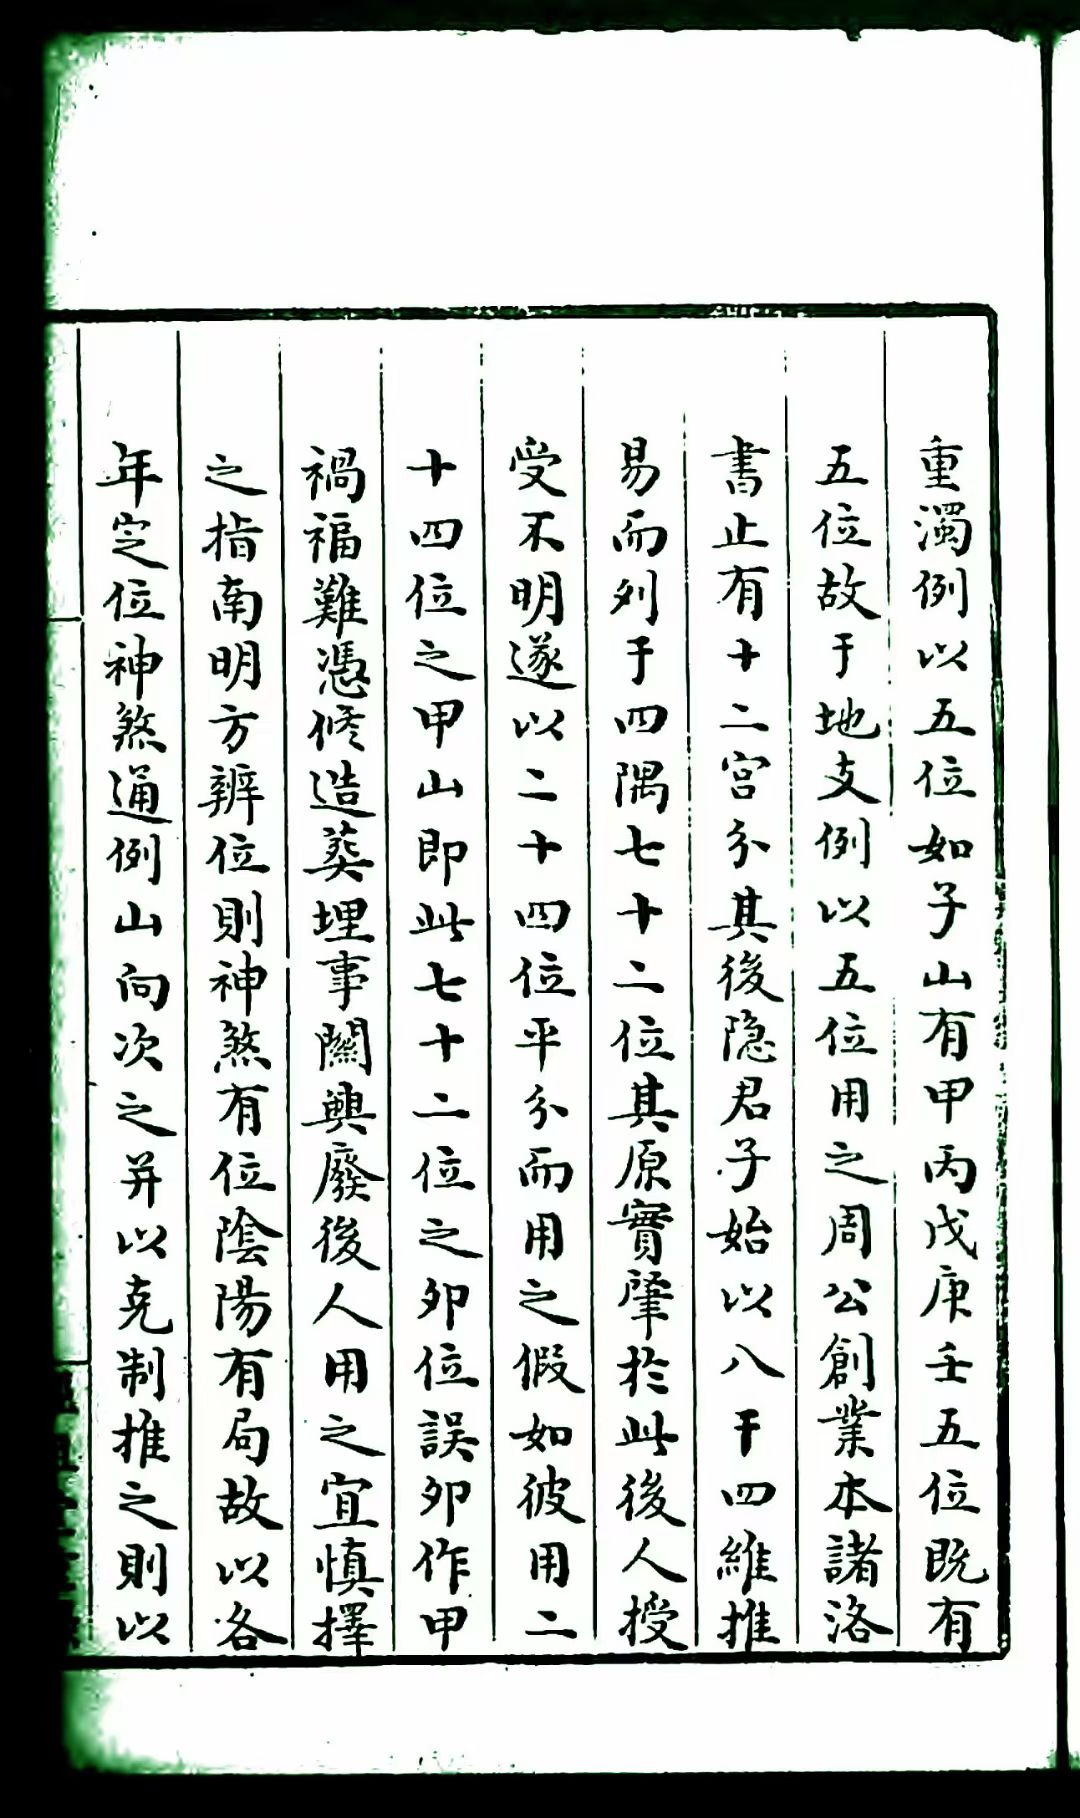 重濁例以五位如子山有甲丙戊庚壬五位既有
五位故于地支例以五位用之周公創業本諸洛
書止有十二宮分其後隐君子始以八干四維推
易而列于四隅七十二位其原實肇於此後人授
受不明遂以二十四位平分而用之假如彼用二
十四位之甲山即此七十二位之卯位誤卯作甲
禍福難憑修造葬埋事關興廢後人用之宜慎擇
之指南明方辨位則神煞有位陰陽有局故以各
年定位神煞通例山向次之并以克制推之則以